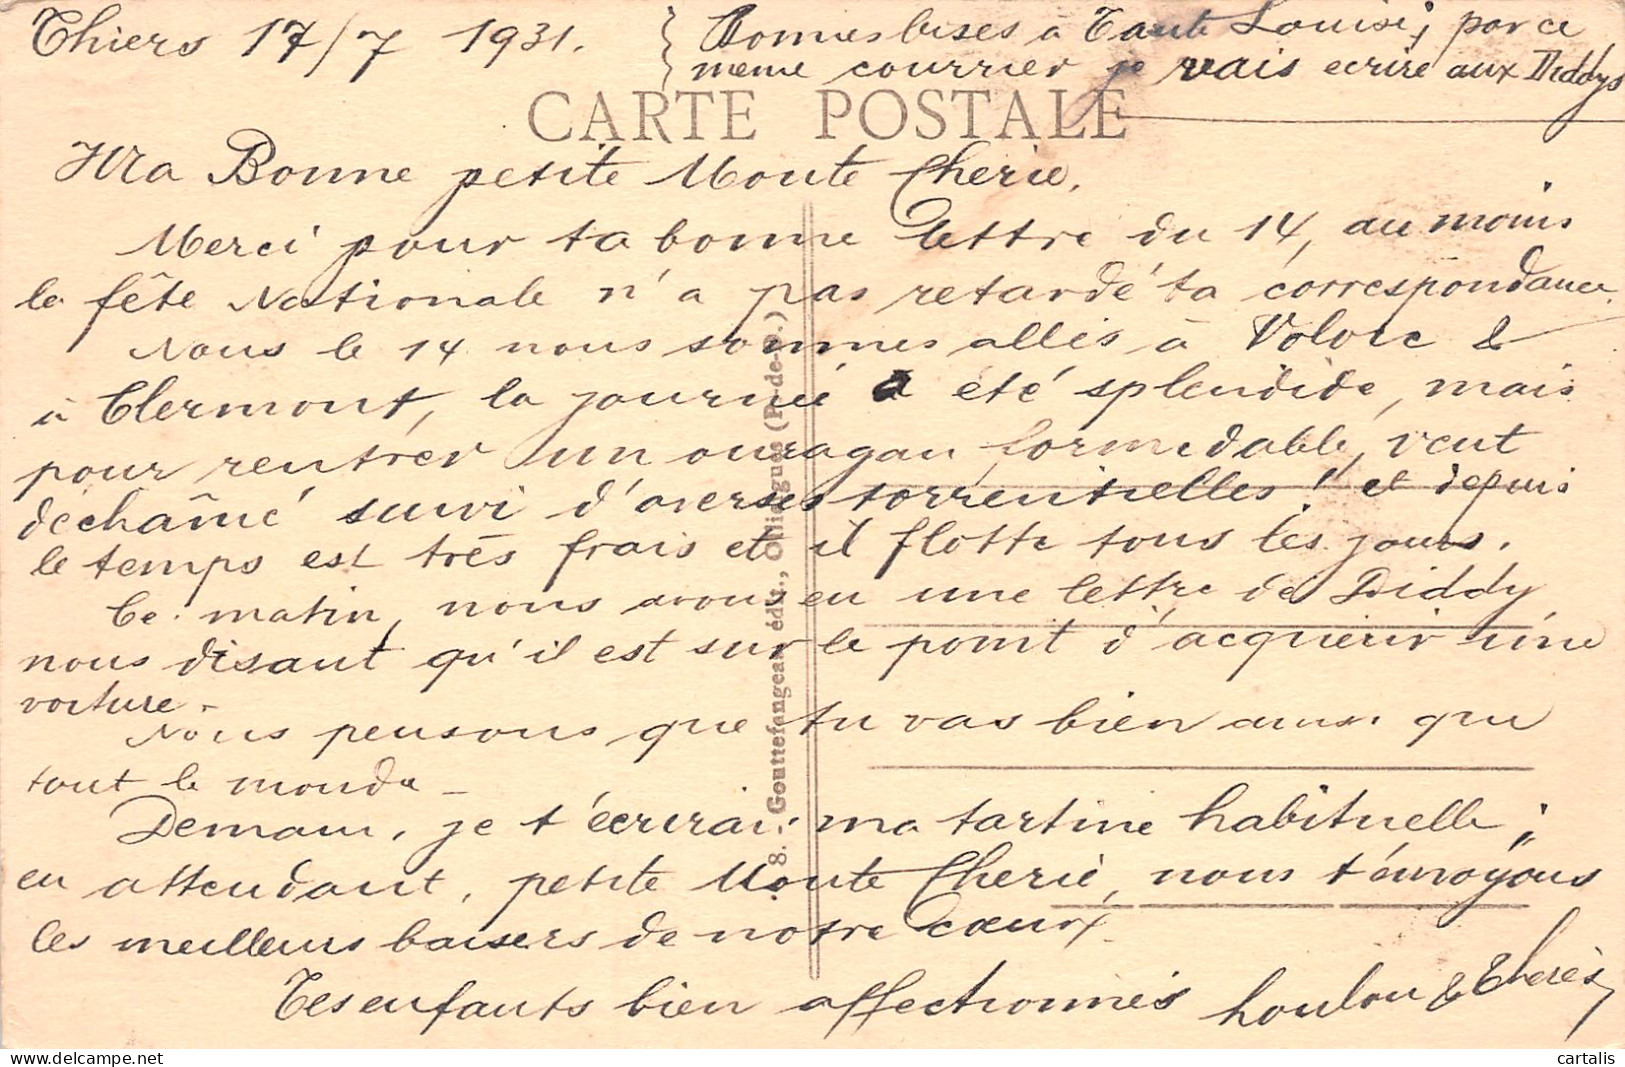 Thiers 17/7 1931.
Bonnes bises à Tante Louise, par ce
meme courrier je vais ecrire aux Diddys
CARTE POSTALE
Ma Bonne petite Moute Cherie,
Merci pour ta bonne lettre du 14, au moins
la fête Nationale n'a pas retardé ta correspondance.
Nous le 14 nous sommes allés à Volvic &
à Clermont, la journée a été splendide, mais
pour rentrer un ouragan formidable, vent
déchaîné suivi d'averses torrentielles! et depuis
le temps est très frais et il flotte tous les jours.
Ce matin, nous avons eu une lettre de Diddy
nous disant qu'il est sur le point d'acquérir une
voiture -
Nous pensons que tu vas bien ainsi que
tout le monde -
Demain, je t'écrirai ma tartine habituelle;
en attendant, petite Moute Cherie, nous t'envoyons
les meilleurs baisers de notre cœur.
Tes enfants bien affectionnés Loulou & Thérès
8. Gouttefangeas édit., Olliergues (P.-de-D.)
cartalis